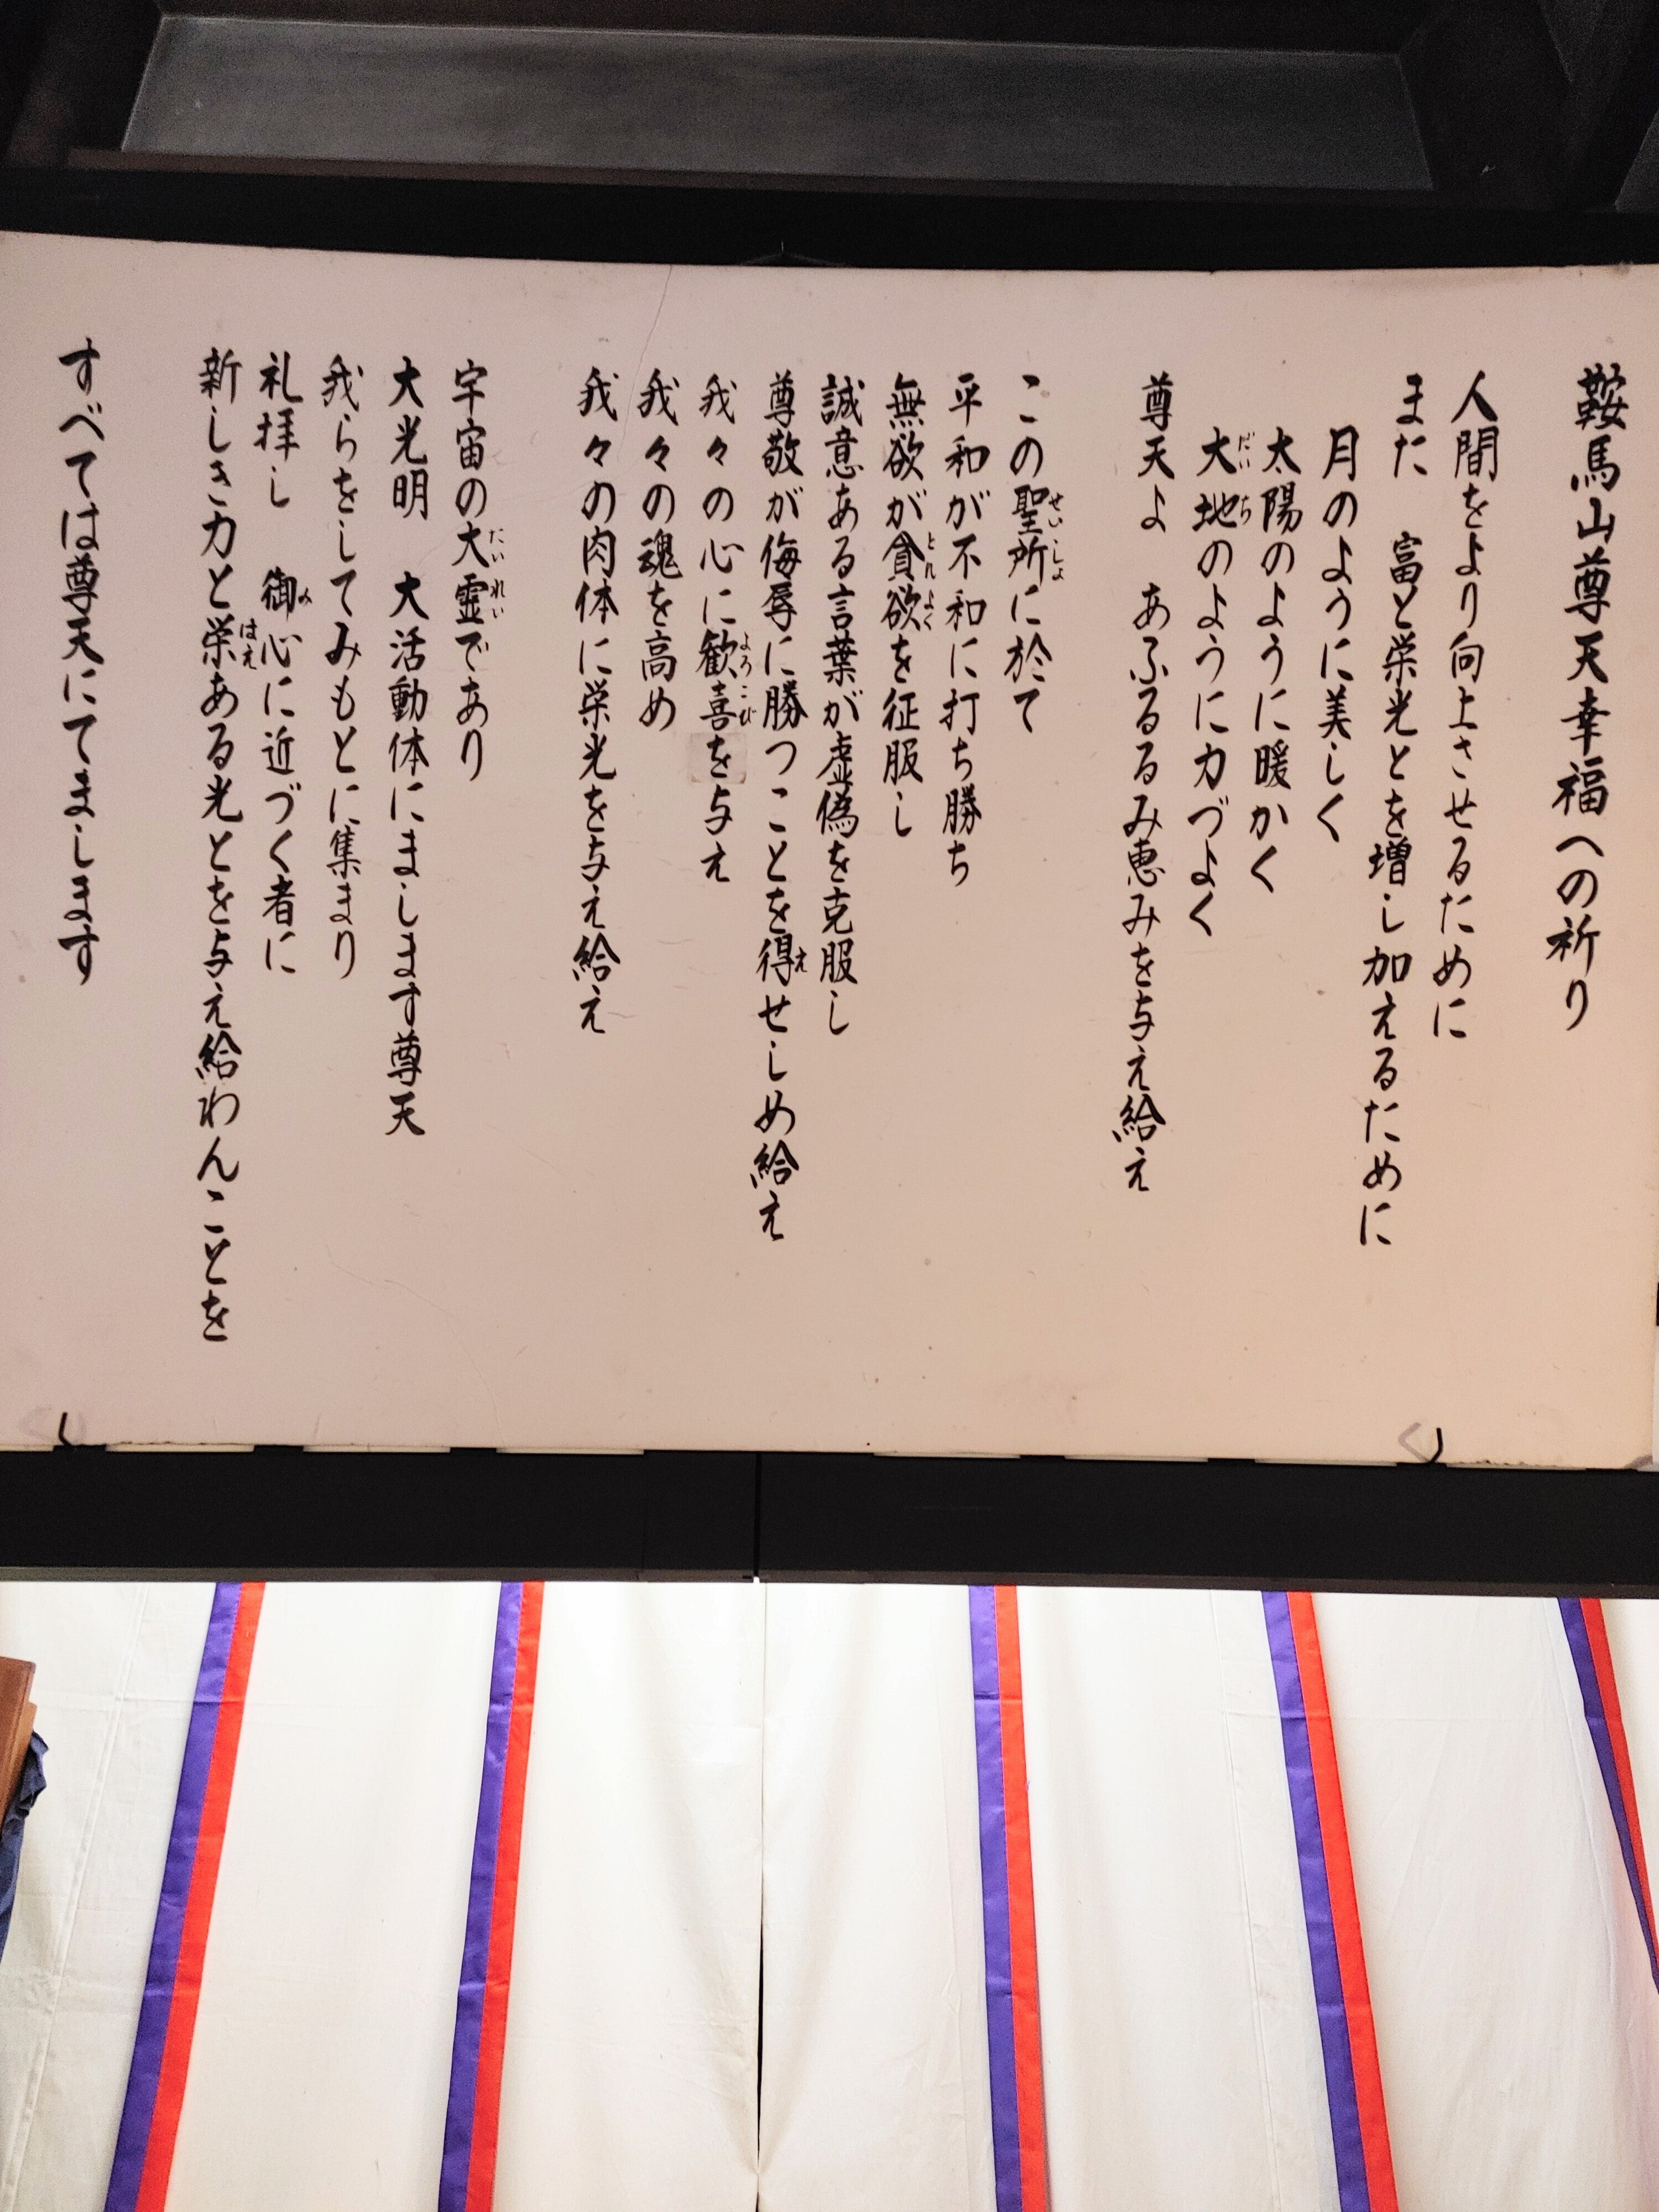 鞍馬山尊天幸福への祈り
人間をより向上させるために
また　富と栄光とを増し加えるために
月のように美しく
太陽のように暖かく
大地のように力づよく
尊天よ　あふるるみ恵みを与え給え
この聖所に於て
平和が不和に打ち勝ち
無欲が貪欲を征服し
誠意ある言葉が虚偽を克服し
尊敬が侮辱に勝つことを得せしめ給え
我々の心に歓喜を与え
我々の魂を高め
我々の肉体に栄光を与え給え
宇宙の大霊であり
大光明　大活動体にまします尊天
我らをしてみもとに集まり
礼拝し　御心に近づく者に
新しき力と栄ある光とを与え給わんことを
すべては尊天にてまします